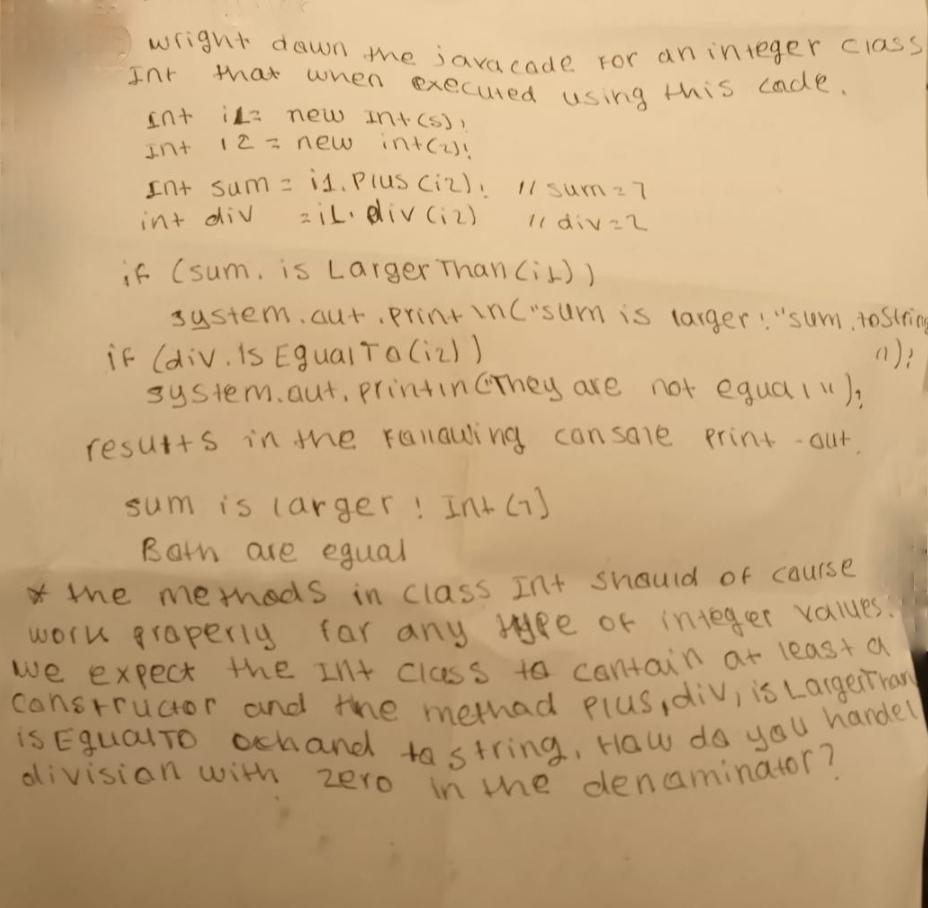 wright dawn the javacade for an integer class
Int that when executed using this cade.
Int i1= new Int(5);
Int i2 = new int(2);
Int sum = i1.Plus(i2); // sum=7
int div = i1. div(i2) // div=2
if (sum. is LargerThan(i1))
system.aut.println("sum is larger!"sum.toString
if (div.Is EqualTo(i2)) ());
system.aut.println("They are not equal");
results in the Fallawing cansale print-aut.
sum is larger! Int(7)
Bath are equal
* the methads in class Int shauld of caurse
work praperly far any type of integer values.
we expect the Int class ta cantain at least a
canstructor and the methad Plus,div, is LargerThan
isEqualTO ochand tastring. Haw da yau handel
divisian with zero in the denaminatar?